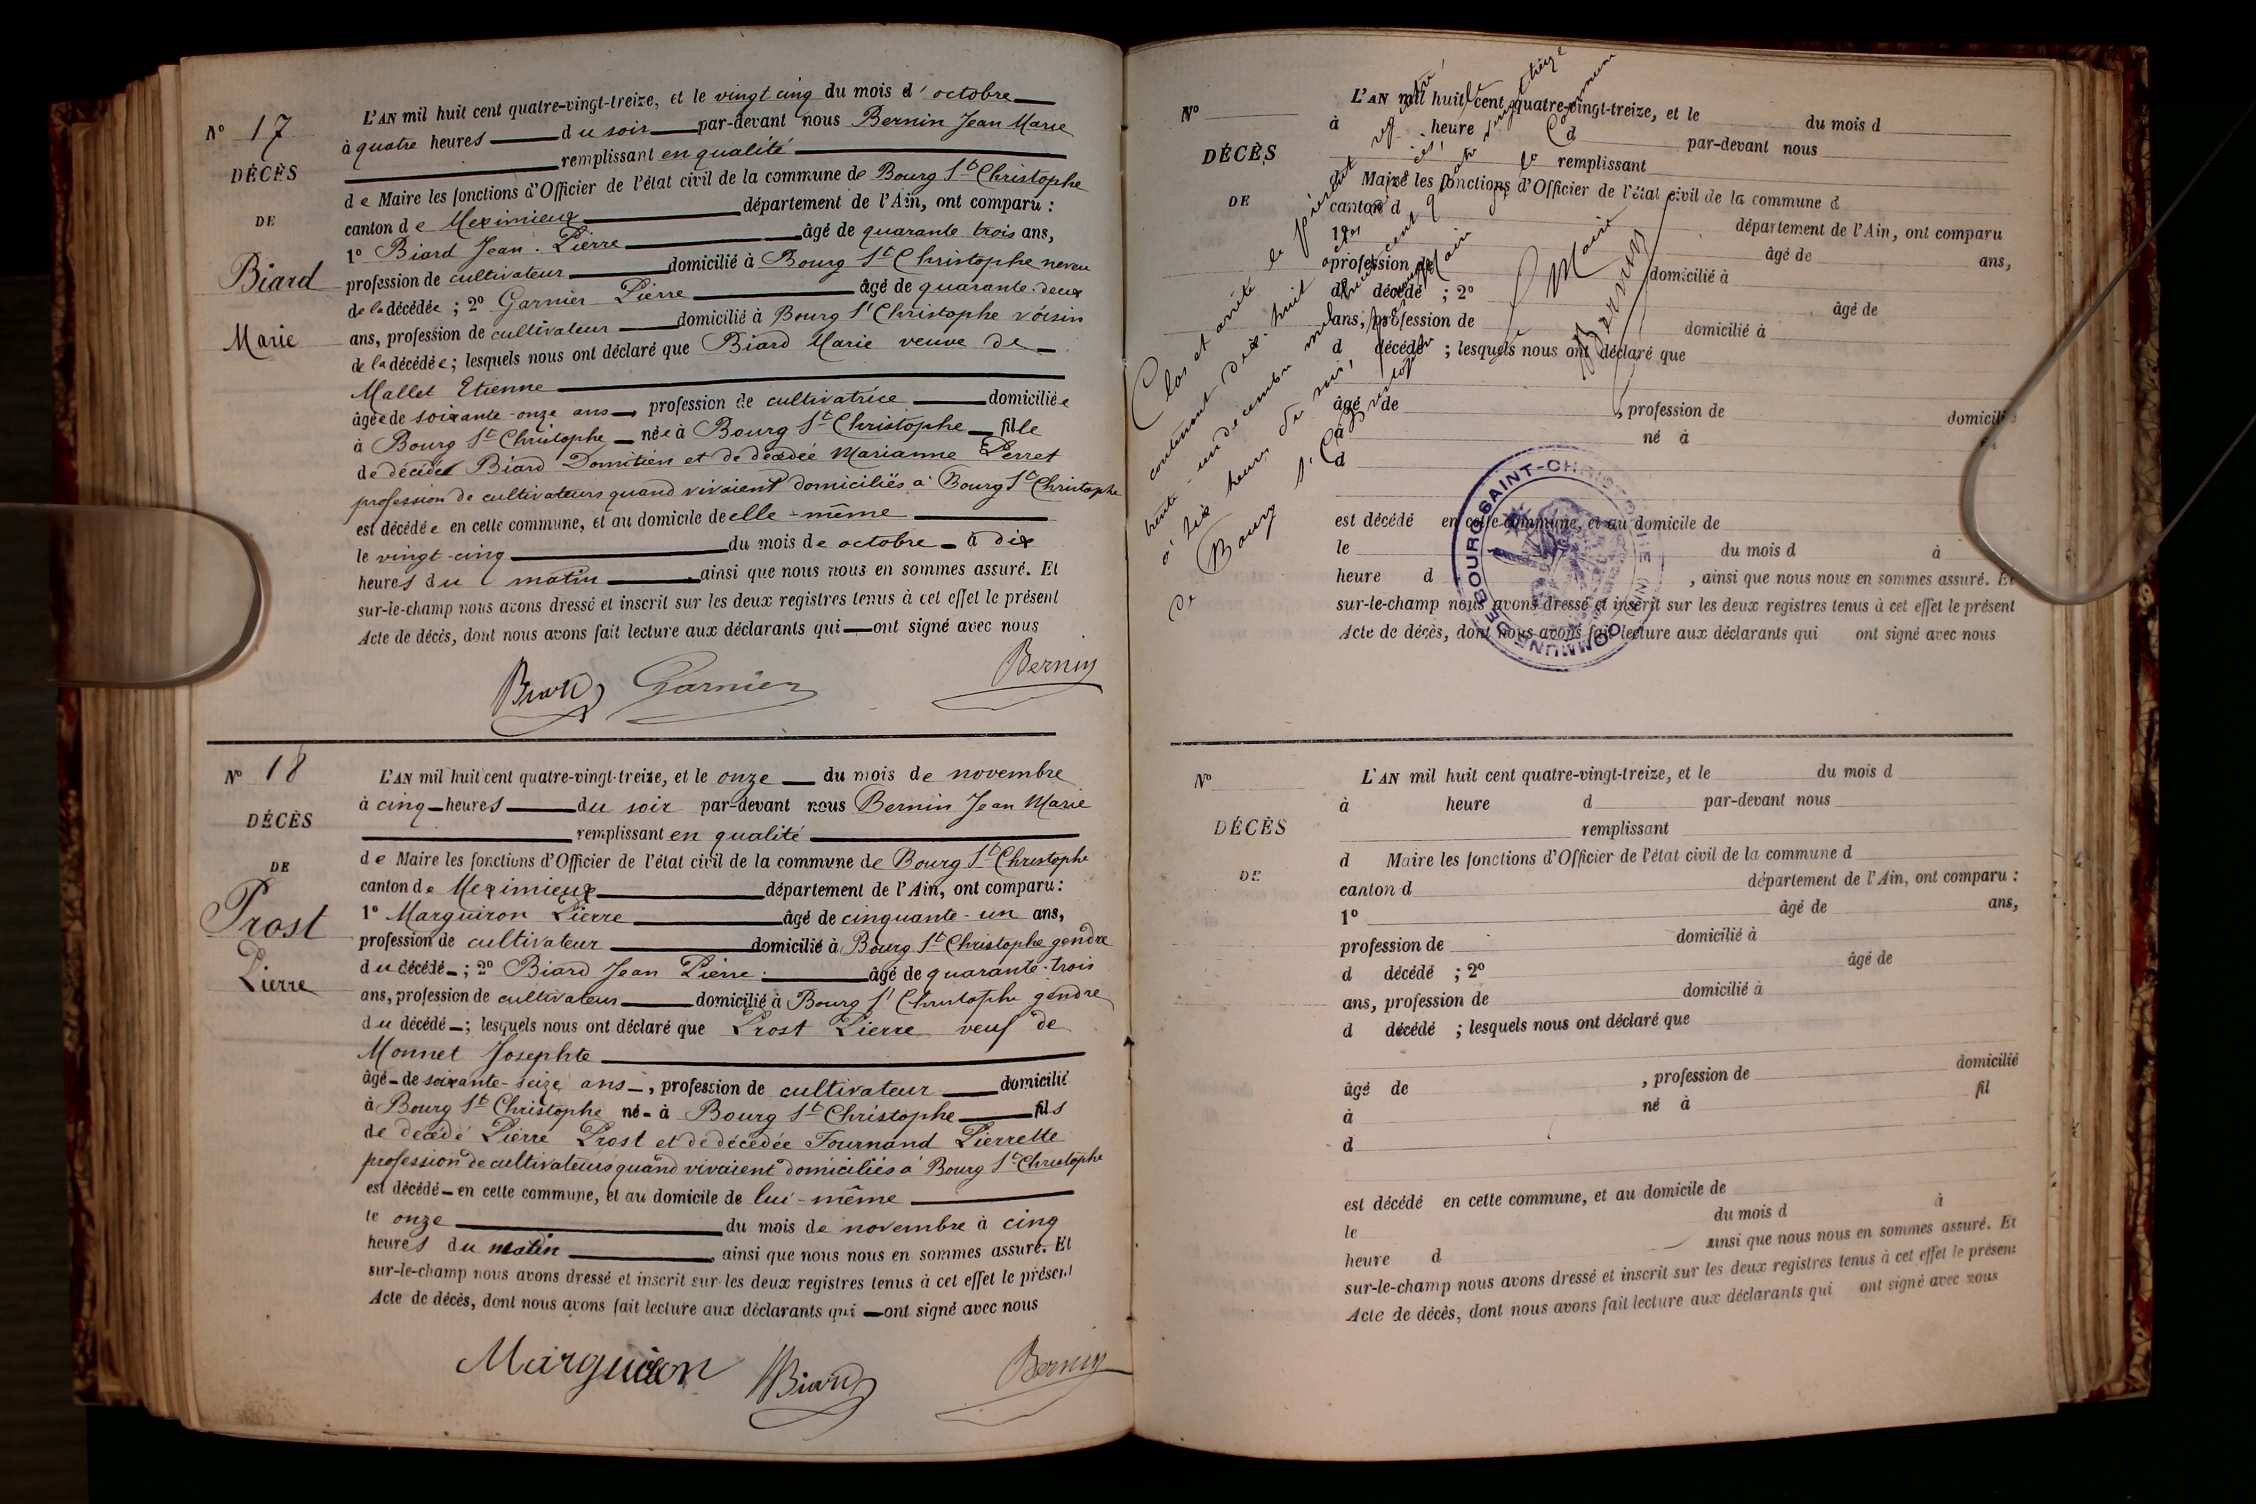 N° 17
DÉCÈS
DE
Biard
Marie
L'AN mil huit cent quatre-vingt-treize, et le vingt cinq du mois d'octobre
à quatre heures du soir par-devant nous Bernin Jean Marie
remplissant en qualité
de Maire les fonctions d'Officier de l'état civil de la commune de Bourg St Christophe
canton de Meximieux département de l'Ain, ont comparu :
1° Biard Jean-Pierre âgé de quarante trois ans,
profession de cultivateur domicilié à Bourg St Christophe neveu
de la décédée ; 2° Garnier Pierre âgé de quarante-deux
ans, profession de cultivateur domicilié à Bourg St Christophe voisin
de la décédée ; lesquels nous ont déclaré que Biard Marie veuve de
Mallet Etienne
âgée de soixante-onze ans, profession de cultivatrice domiciliée
à Bourg St Christophe née à Bourg St Christophe fille
de décédé Biard Domitien et de décédée Marianne Perret
profession de cultivateurs quand vivaient domiciliés à Bourg St Christophe
est décédée en cette commune, et au domicile de elle-même
le vingt-cinq du mois de octobre à dix
heures du matin ainsi que nous nous en sommes assuré. Et
sur-le-champ nous avons dressé et inscrit sur les deux registres tenus à cet effet le présent
Acte de décès, dont nous avons fait lecture aux déclarants qui ont signé avec nous
Biard Garnier Bernin
N° 18
DÉCÈS
DE
Prost
Pierre
L'AN mil huit cent quatre-vingt-treize, et le onze du mois de novembre
à cinq heures du soir par-devant nous Bernin Jean Marie
remplissant en qualité
de Maire les fonctions d'Officier de l'état civil de la commune de Bourg St Christophe
canton de Meximieux département de l'Ain, ont comparu :
1° Marguiron Pierre âgé de cinquante-un ans,
profession de cultivateur domicilié à Bourg St Christophe gendre
du décédé ; 2° Biard Jean Pierre âgé de quarante-trois
ans, profession de cultivateur domicilié à Bourg St Christophe gendre
du décédé ; lesquels nous ont déclaré que Prost Pierre veuf de
Monnet Josephte
âgé de soixante-seize ans, profession de cultivateur domicilié
à Bourg St Christophe né à Bourg St Christophe fils
de décédé Pierre Prost et de décédée Fournand Pierrette
profession de cultivateurs quand vivaient domiciliés à Bourg St Christophe
est décédé en cette commune, et au domicile de lui-même
le onze du mois de novembre à cinq
heures du matin, ainsi que nous nous en sommes assuré. Et
sur-le-champ nous avons dressé et inscrit sur les deux registres tenus à cet effet le présent
Acte de décès, dont nous avons fait lecture aux déclarants qui ont signé avec nous
Marguiron Biard Bernin
N°
DÉCÈS
DE
L'AN mil huit cent quatre-vingt-treize, et le du mois d
à heure d par-devant nous
remplissant
d Maire les fonctions d'Officier de l'état civil de la commune d
canton d département de l'Ain, ont comparu
1° âgé de ans,
profession de domicilié à
d décédé ; 2° âgé de
ans, profession de domicilié à
d décédé ; lesquels nous ont déclaré que
âgé de , profession de domicilié
à né à
d
est décédé en cette commune, et au domicile de
le du mois d à
heure d , ainsi que nous nous en sommes assuré. Et
sur-le-champ nous avons dressé et inscrit sur les deux registres tenus à cet effet le présent
Acte de décès, dont nous avons fait lecture aux déclarants qui ont signé avec nous
Clos et arrêté le présent registre
contenant dix-huit actes
trente-un décembre mil huit cent quatre vingt treize
à six heures du soir, Maire Commune
de Bourg St Christophe
Le Maire
Bernin
COMMUNE DE BOURG-SAINT-CHRISTOPHE (AIN)
N°
DÉCÈS
DE
L'AN mil huit cent quatre-vingt-treize, et le du mois d
à heure d par-devant nous
remplissant
d Maire les fonctions d'Officier de l'état civil de la commune d
canton d département de l'Ain, ont comparu :
1° âgé de ans,
profession de domicilié à
d décédé ; 2° âgé de
ans, profession de domicilié à
d décédé ; lesquels nous ont déclaré que
âgé de , profession de domicilié
à né à fil
d
est décédé en cette commune, et au domicile de
le du mois d à
heure d ainsi que nous nous en sommes assuré. Et
sur-le-champ nous avons dressé et inscrit sur les deux registres tenus à cet effet le présent
Acte de décès, dont nous avons fait lecture aux déclarants qui ont signé avec nous